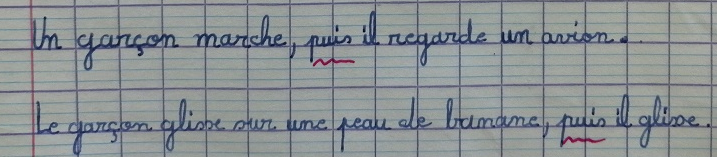 Un garçon marche, puis il regarde un avion.
Le garçon glisse sur une peau de banane, puis il glisse.